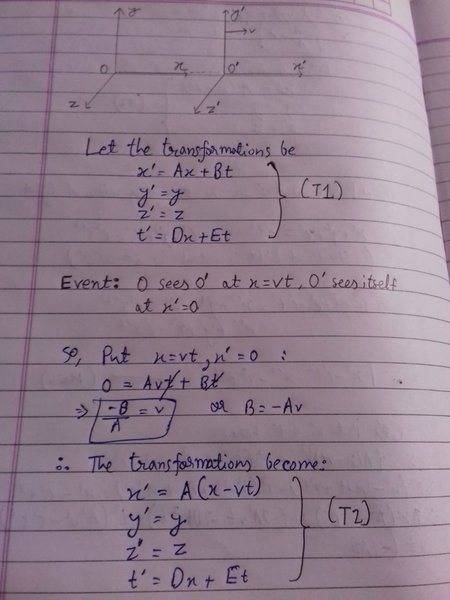 y y'
v
O x O' x'
z z'
Let the transformations be
x' = Ax + Bt
y' = y
z' = z
t' = Dx + Et
(T1)
Event: O sees O' at x=vt, O' sees itself
at x'=0
So, Put x=vt, x'=0 :
0 = Avt + Bt
⇒ -B/A = v or B = -Av
∴ The transformations become:
x' = A(x-vt)
y' = y
z' = z
t' = Dx + Et
(T2)